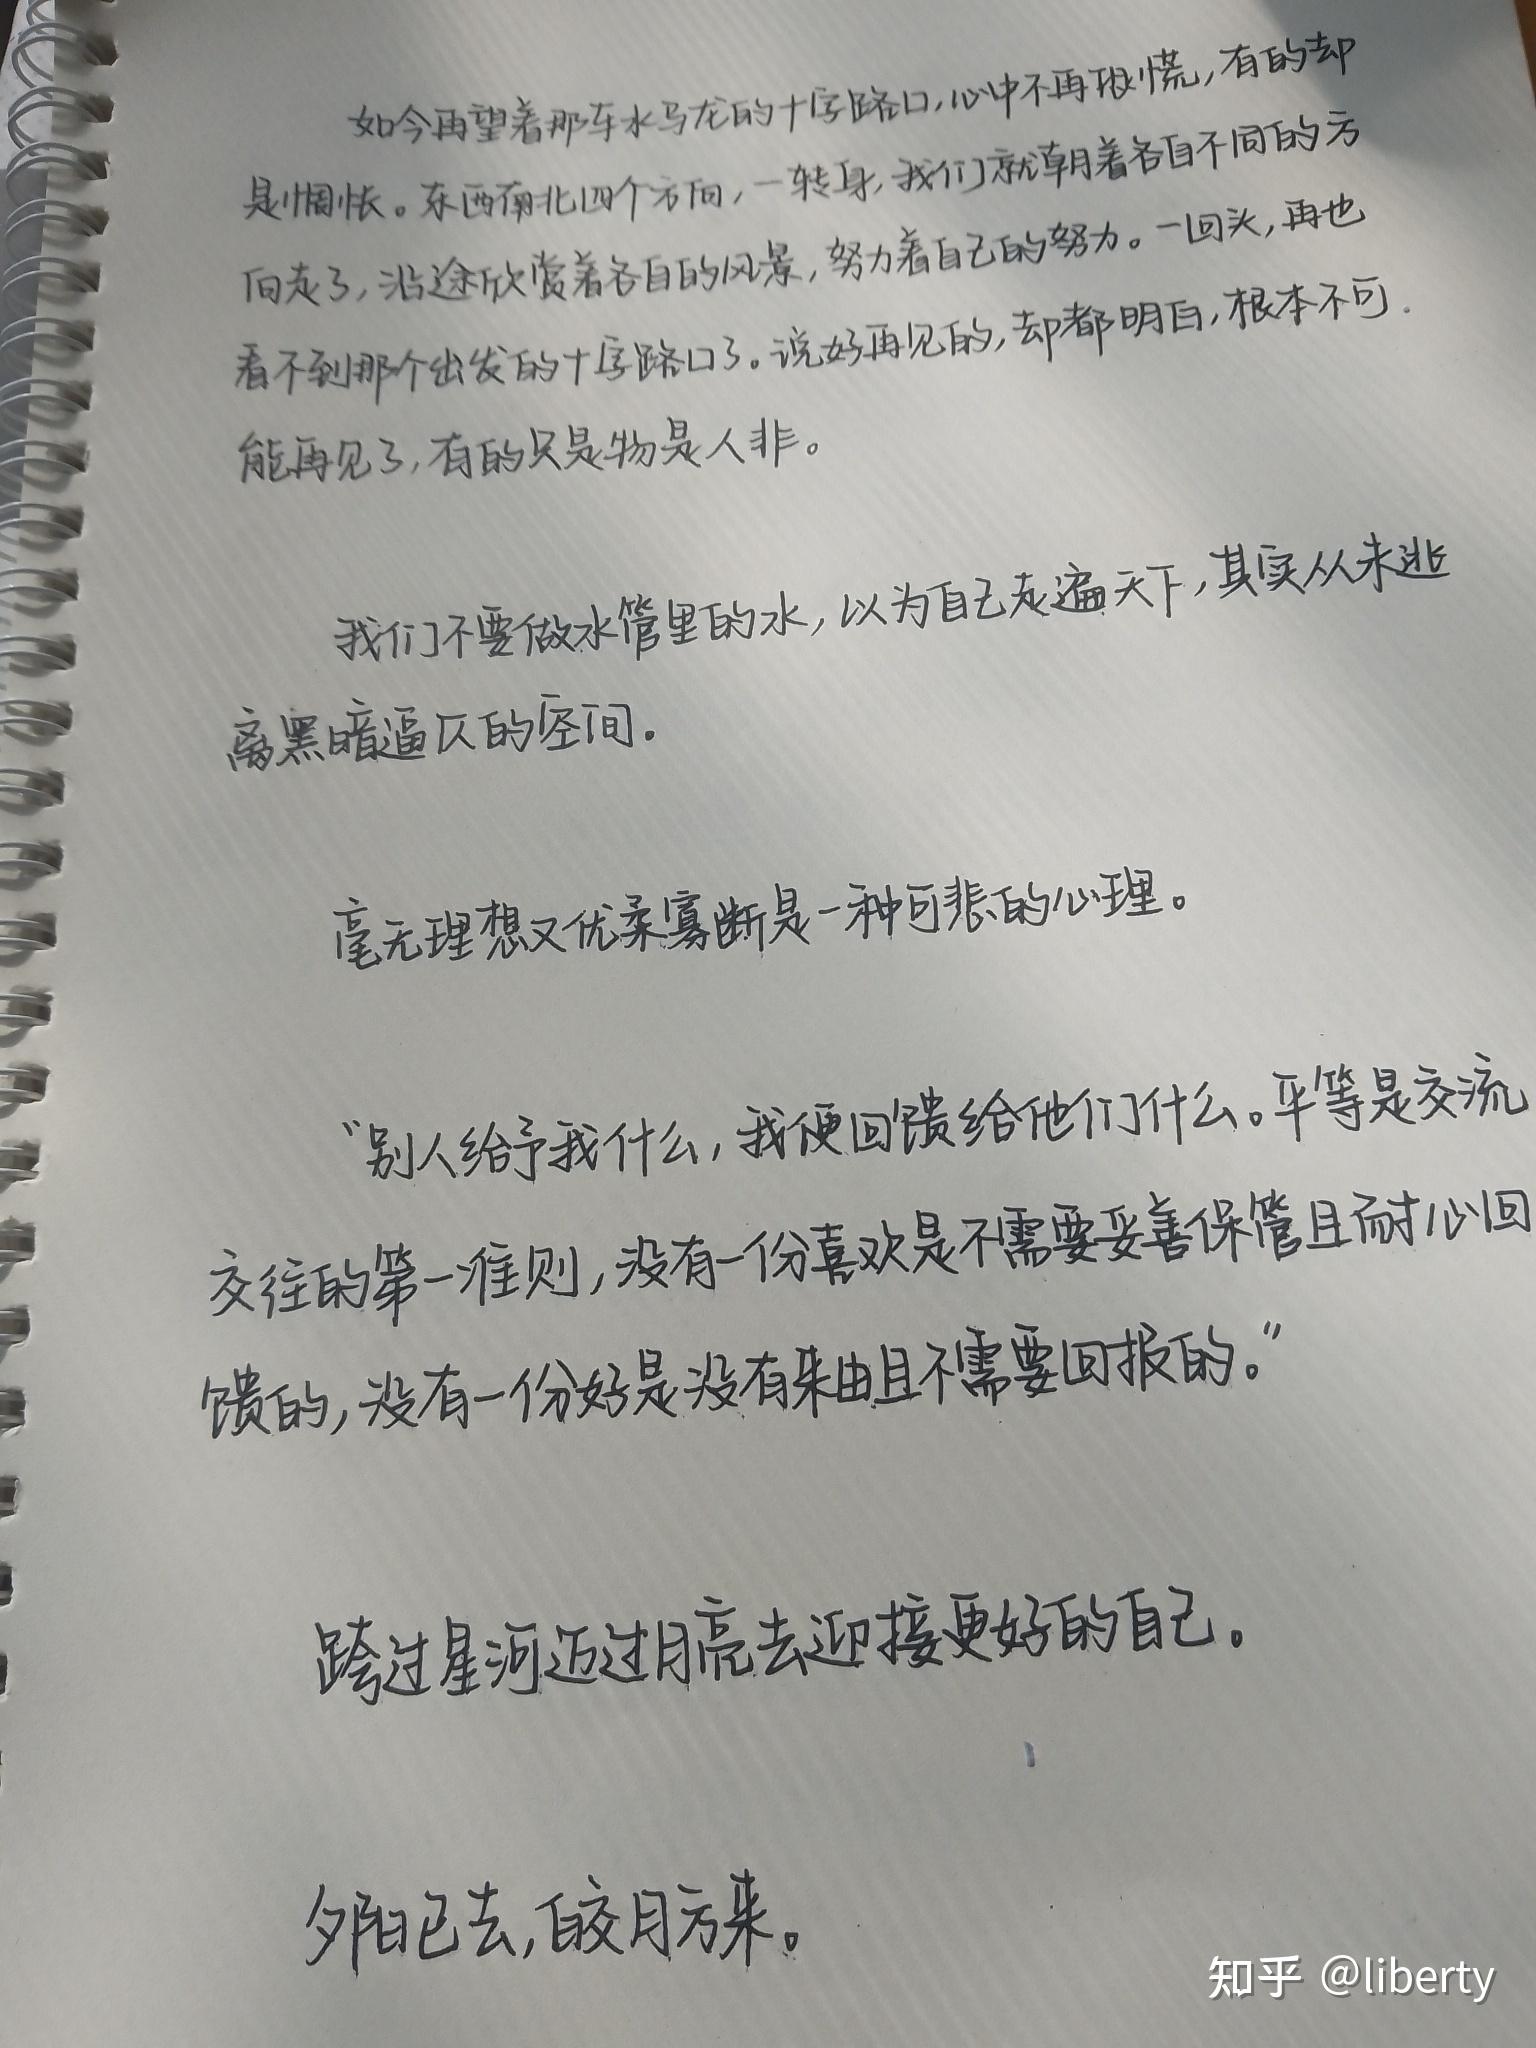 如今再望着那车水马龙的十字路口，心中不再恨慌，有的却
是惆怅。东西南北四个方向，一转身，我们就朝着各自不同的方
向走了，沿途欣赏着各自的风景，努力着自己的努力。一回头，再也
看不到那个出发的十字路口了。说好再见的，却都明白，根本不可
能再见了，有的只是物是人非。
我们不要做水管里的水，以为自己走遍天下，其实从未逃
离黑暗逼仄的空间。
毫无理想又优柔寡断是一种可悲的心理。
“别人给予我什么，我便回馈给他们什么。平等是交流
交往的第一准则，没有一份喜欢是不需要妥善保管且耐心回
馈的，没有一份好是没有来由且不需要回报的。”
跨过星河迈过月亮去迎接更好的自己。
夕阳已去，皎月方来。
知乎 @liberty